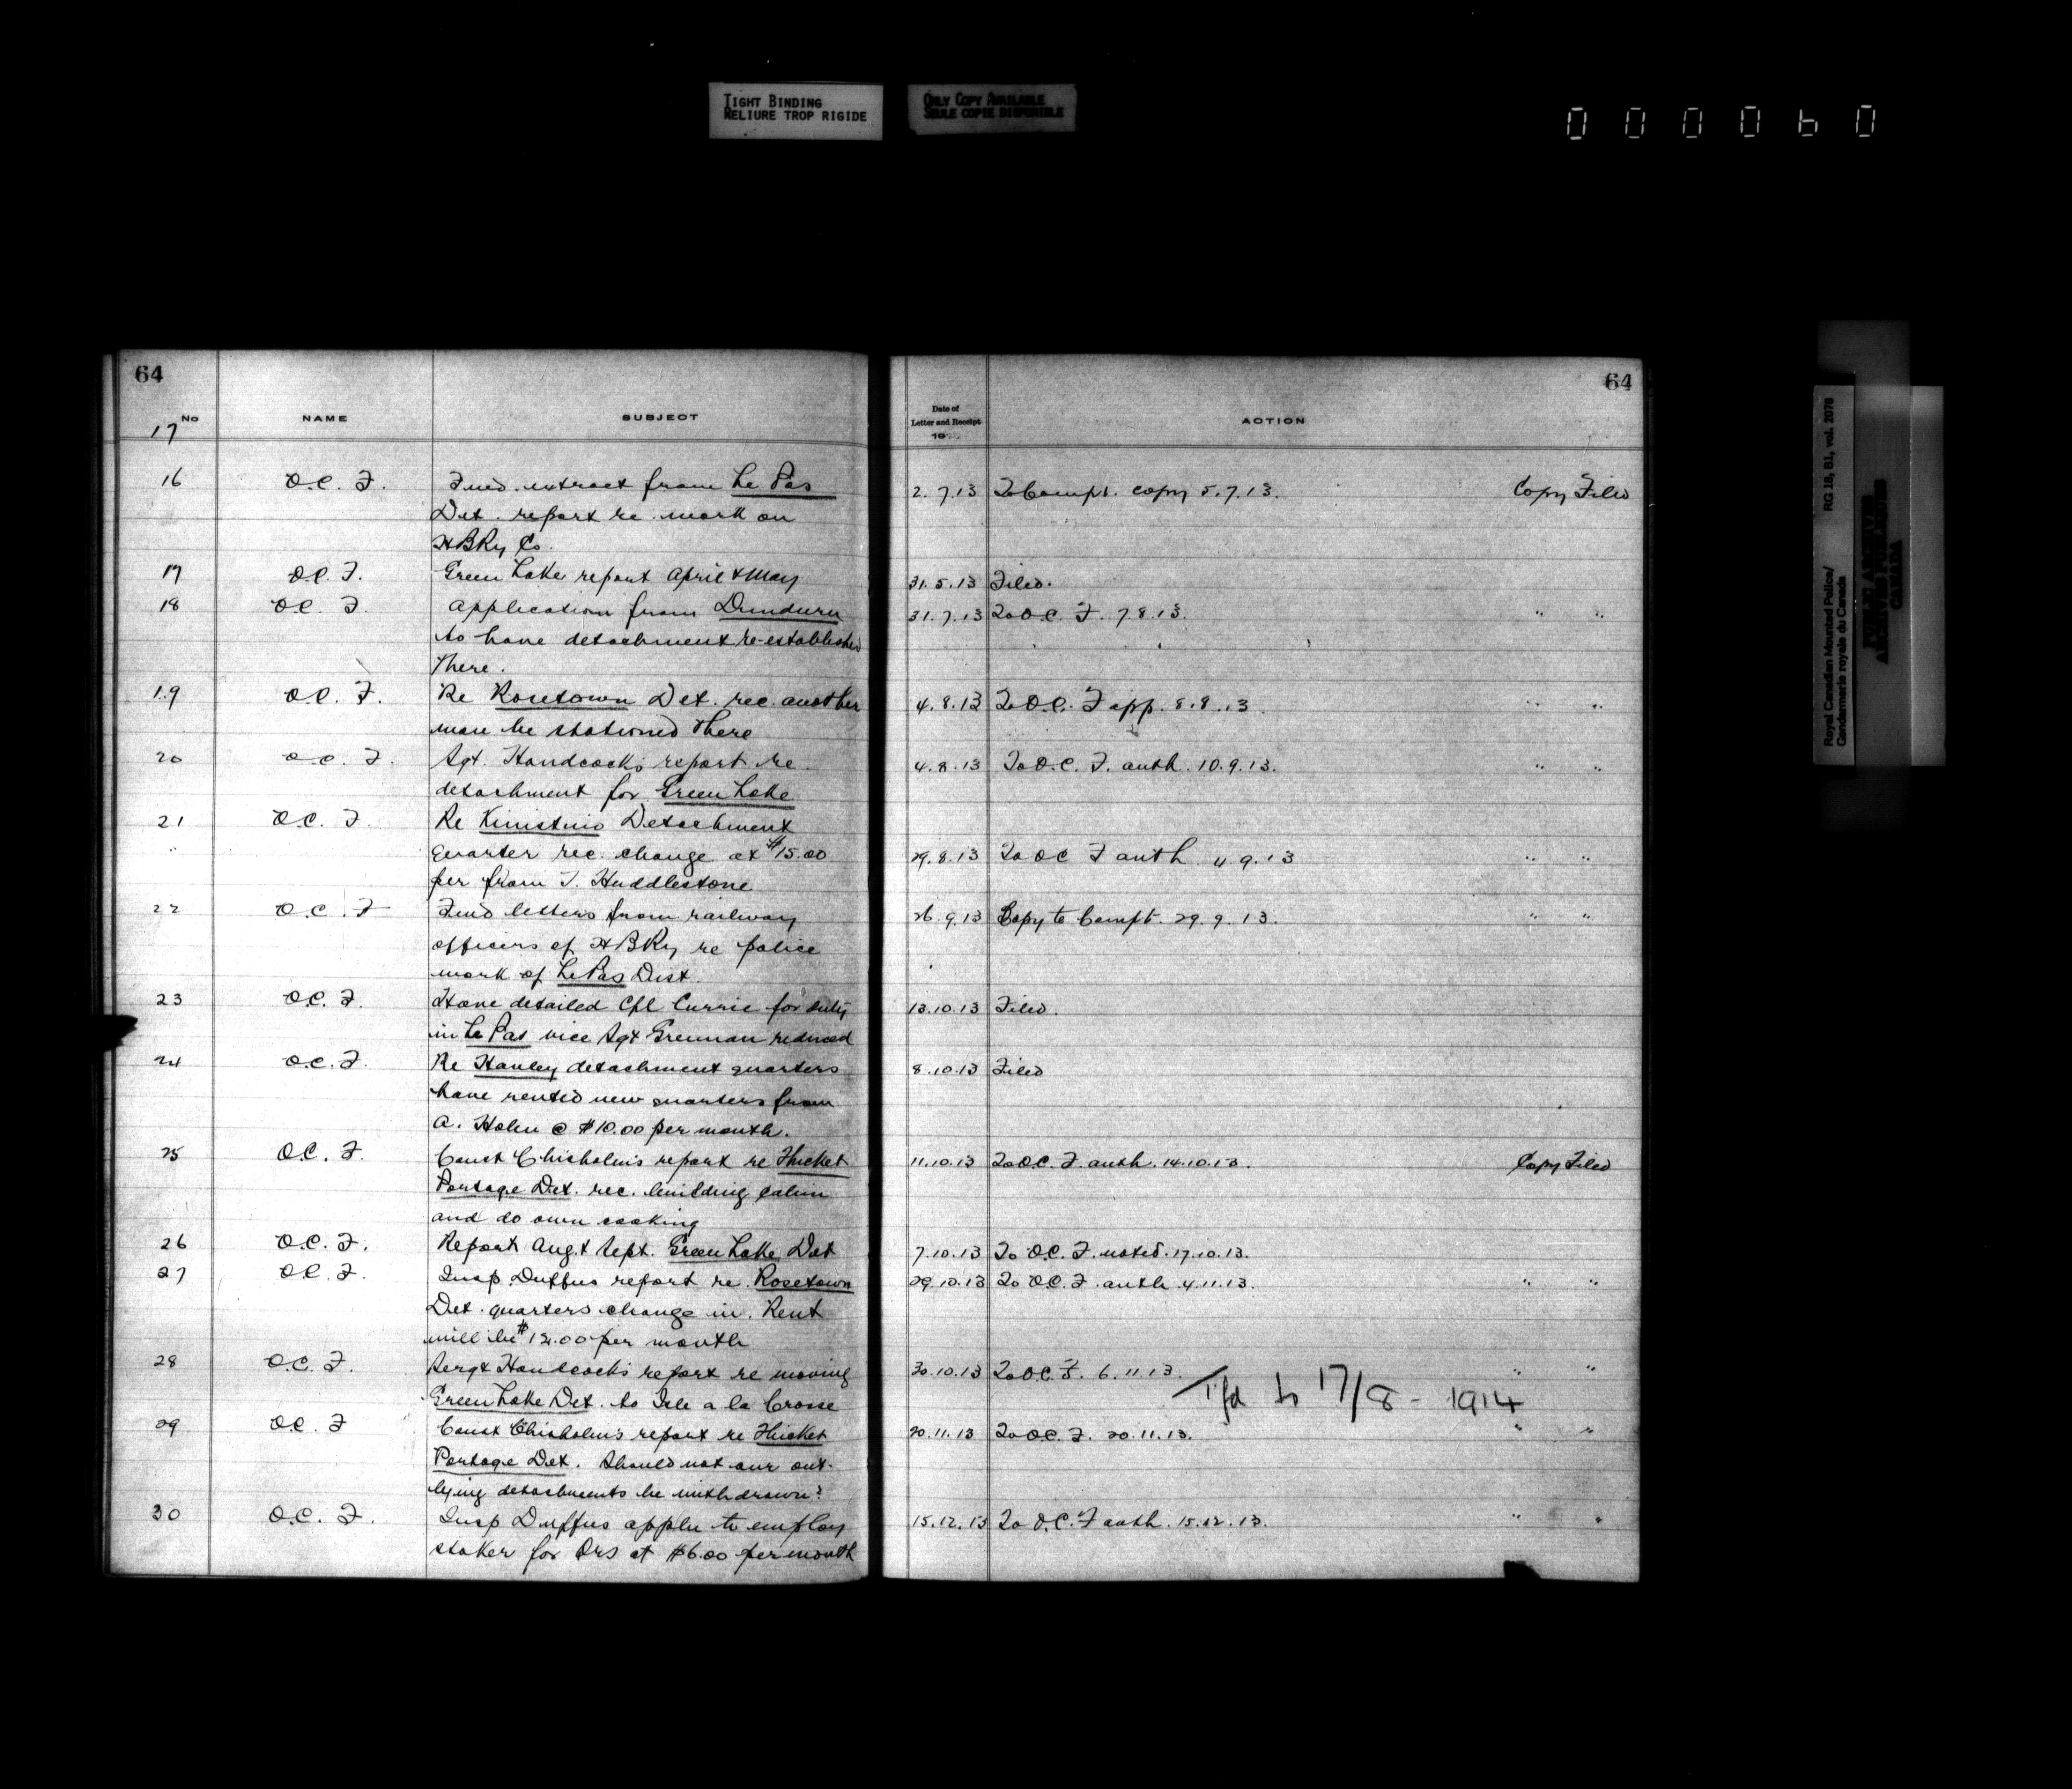 TIGHT BINDING
RELIURE TROP RIGIDE
ONLY COPY AVAILABLE
SEULE COPIE DISPONIBLE
000060
64
No NAME SUBJECT
17
16 O.C. F. Fwd. extract from Le Pas
Det. report re. work on
HBRy Co.
17 O.C. F. Green Lake report April & May
18 O.C. F. Application from Dundurn
to have detachment re-established
there.
19 O.C. F. Re Rosetown Det. rec. another
man be stationed there
20 O.C. F. Sgt. Handcock's report re.
detachment for Green Lake
21 O.C. F. Re Kinistino Detachment
quarter rec. change at $15.00
per from T. Huddlestone
22 O.C. F Fwd letters from railway
officers of HBRy re police
work of Le Pas Dist.
23 O.C. F. Have detailed Cpl Currie for duty
in Le Pas vice Sgt Grennan reduced
24 O.C. F. Re Hanley detachment quarters
have rented new quarters from
A. Holen @ $10.00 per month.
25 O.C. F. Const Chisholm's report re Thicket
Portage Det. rec. building cabin
and do own cooking
26 O.C. F. Report Aug. & Sept. Green Lake Det
27 O.C. F. Insp. Duffus report re. Rosetown
Det. quarters change in. Rent
will be $12.00 per month
28 O.C. F. Sergt Handcock's report re moving
Green Lake Det. to Isle a la Crosse
29 O.C. F Const Chisholm's report re Thicket
Portage Det. Should not our out-
lying detachments be withdrawn?
30 O.C. F. Insp Duffus appln to employ
stoker for Qrs at $6.00 per month
64
Date of
Letter and Receipt
19
ACTION
2.7.13 To Compt. copy 5.7.13. Copy Filed
31.5.13 Filed.
31.7.13 To O.C. F. 7.8.13. " "
4.8.13 To O.C. F app. 8.8.13. " "
4.8.13 To O.C. F. auth. 10.9.13. " "
29.8.13 To OC F auth 4.9.13 " "
26.9.13 Copy to Compt. 29.9.13. " "
13.10.13 Filed.
8.10.13 Filed
11.10.13 To O.C. F. auth. 14.10.13. Copy Filed
7.10.13 To O.C. F. noted. 17.10.13.
29.10.13 To O.C. F. auth 4.11.13. " "
30.10.13 To O.C. F. 6.11.13. " "
Tfd to 17/8 - 1914
20.11.13 To O.C. F. 20.11.13. " "
15.12.13 To O.C. F auth. 15.12.13. " "
Royal Canadian Mounted Police/ RG 18, B1, vol. 2078
Gendarmerie royale du Canada
PUBLIC ARCHIVES
ARCHIVES PUBLIQUES
CANADA